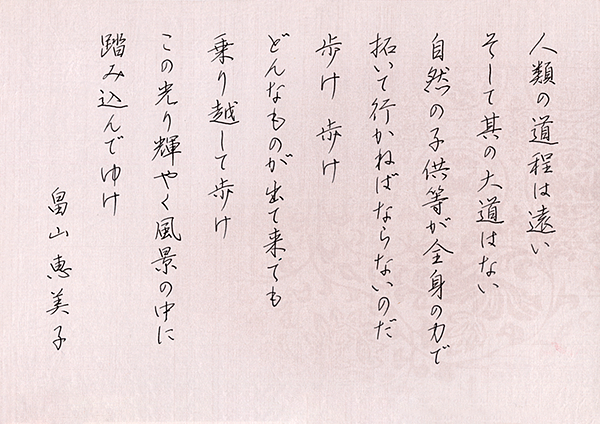 人類の道程は遠い
そして其の大道はない
自然の子供等が全身の力で
拓いて行かねばならないのだ
歩け 歩け
どんなものが出て来ても
乗り越して歩け
この光り輝やく風景の中に
踏み込んでゆけ
畠山恵美子